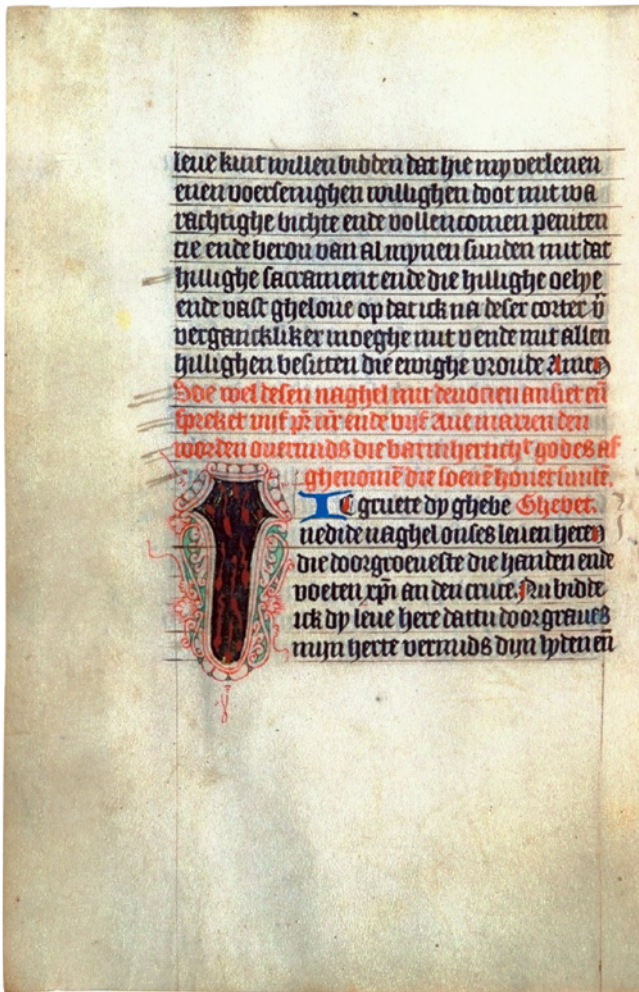 leue kint willen bidden dat hie my verlenen
enen voersenighen willighen doot mit wa
rachtighe bichte ende vollencomen peniten
cie ende berou van al mynen sunden mit dat
hillighe sacrament ende die hillighe oelye
ende vast gheloue op dat ick na deser corter vn̄
verganckliker moeghe mit v ende mit allen
hillighen besitten die ewighe vroude Amen
Soe wel desen naghel mit deuocien ansiet en̄
spreket vijf pr̄ nr̄ ende vijf Aue marien den
worden ouermids die barmherticht godes af
ghenomē die soeuē houet sundē.
Ic gruete dy ghebe Ghebet.
nedide naghel onses leuen heren
die doorgroeueste die handen ende
voeten xp̄i an den cruce. Nu bidde
ick dy leue here dattu doorgraues
mijn herte vermids dijn lyden en̄